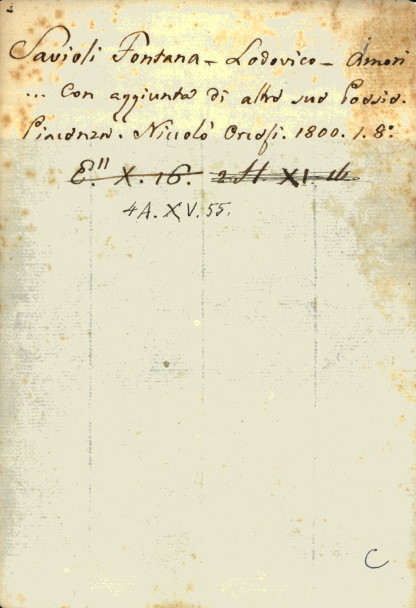 Savioli Fontana - Lodovico - Amori
... Con aggiunta di altre sue Poesie.
Piacenza. Niccolò Orcesi. 1800. 1. 8°
E." X. 16. 2.H. XI. 16.
4A. XV. 55.
C